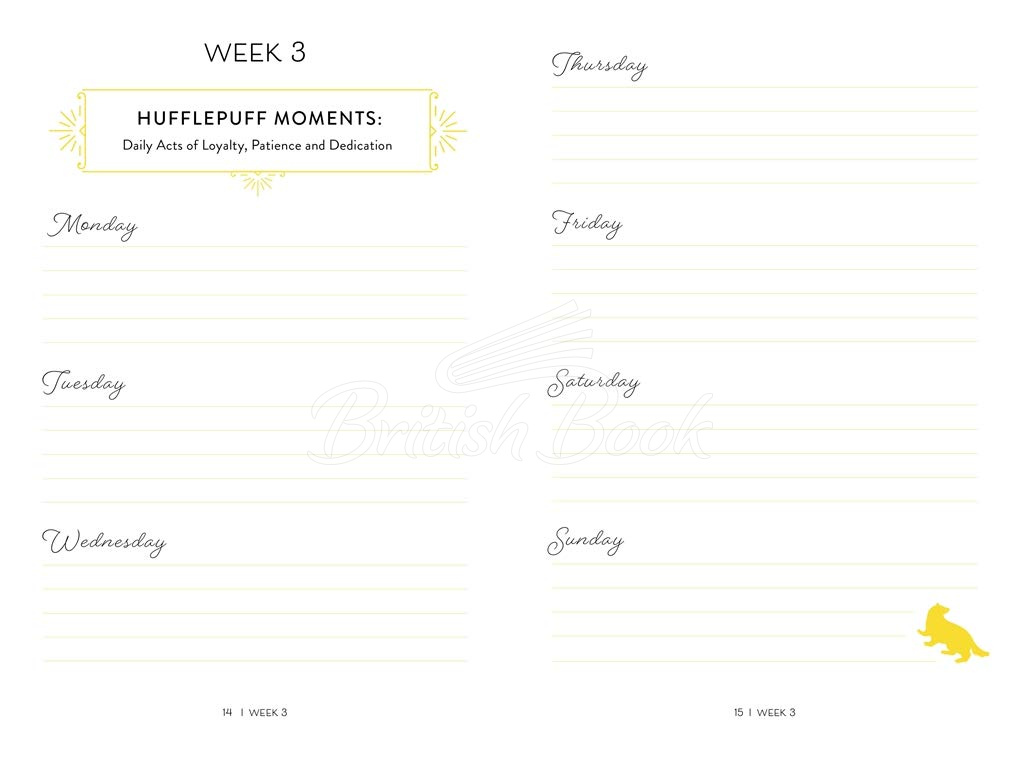 WEEK 3
HUFFLEPUFF MOMENTS:
Daily Acts of Loyalty, Patience and Dedication
Monday
Tuesday
Wednesday
14 | WEEK 3
Thursday
Friday
Saturday
Sunday
15 | WEEK 3
British Book